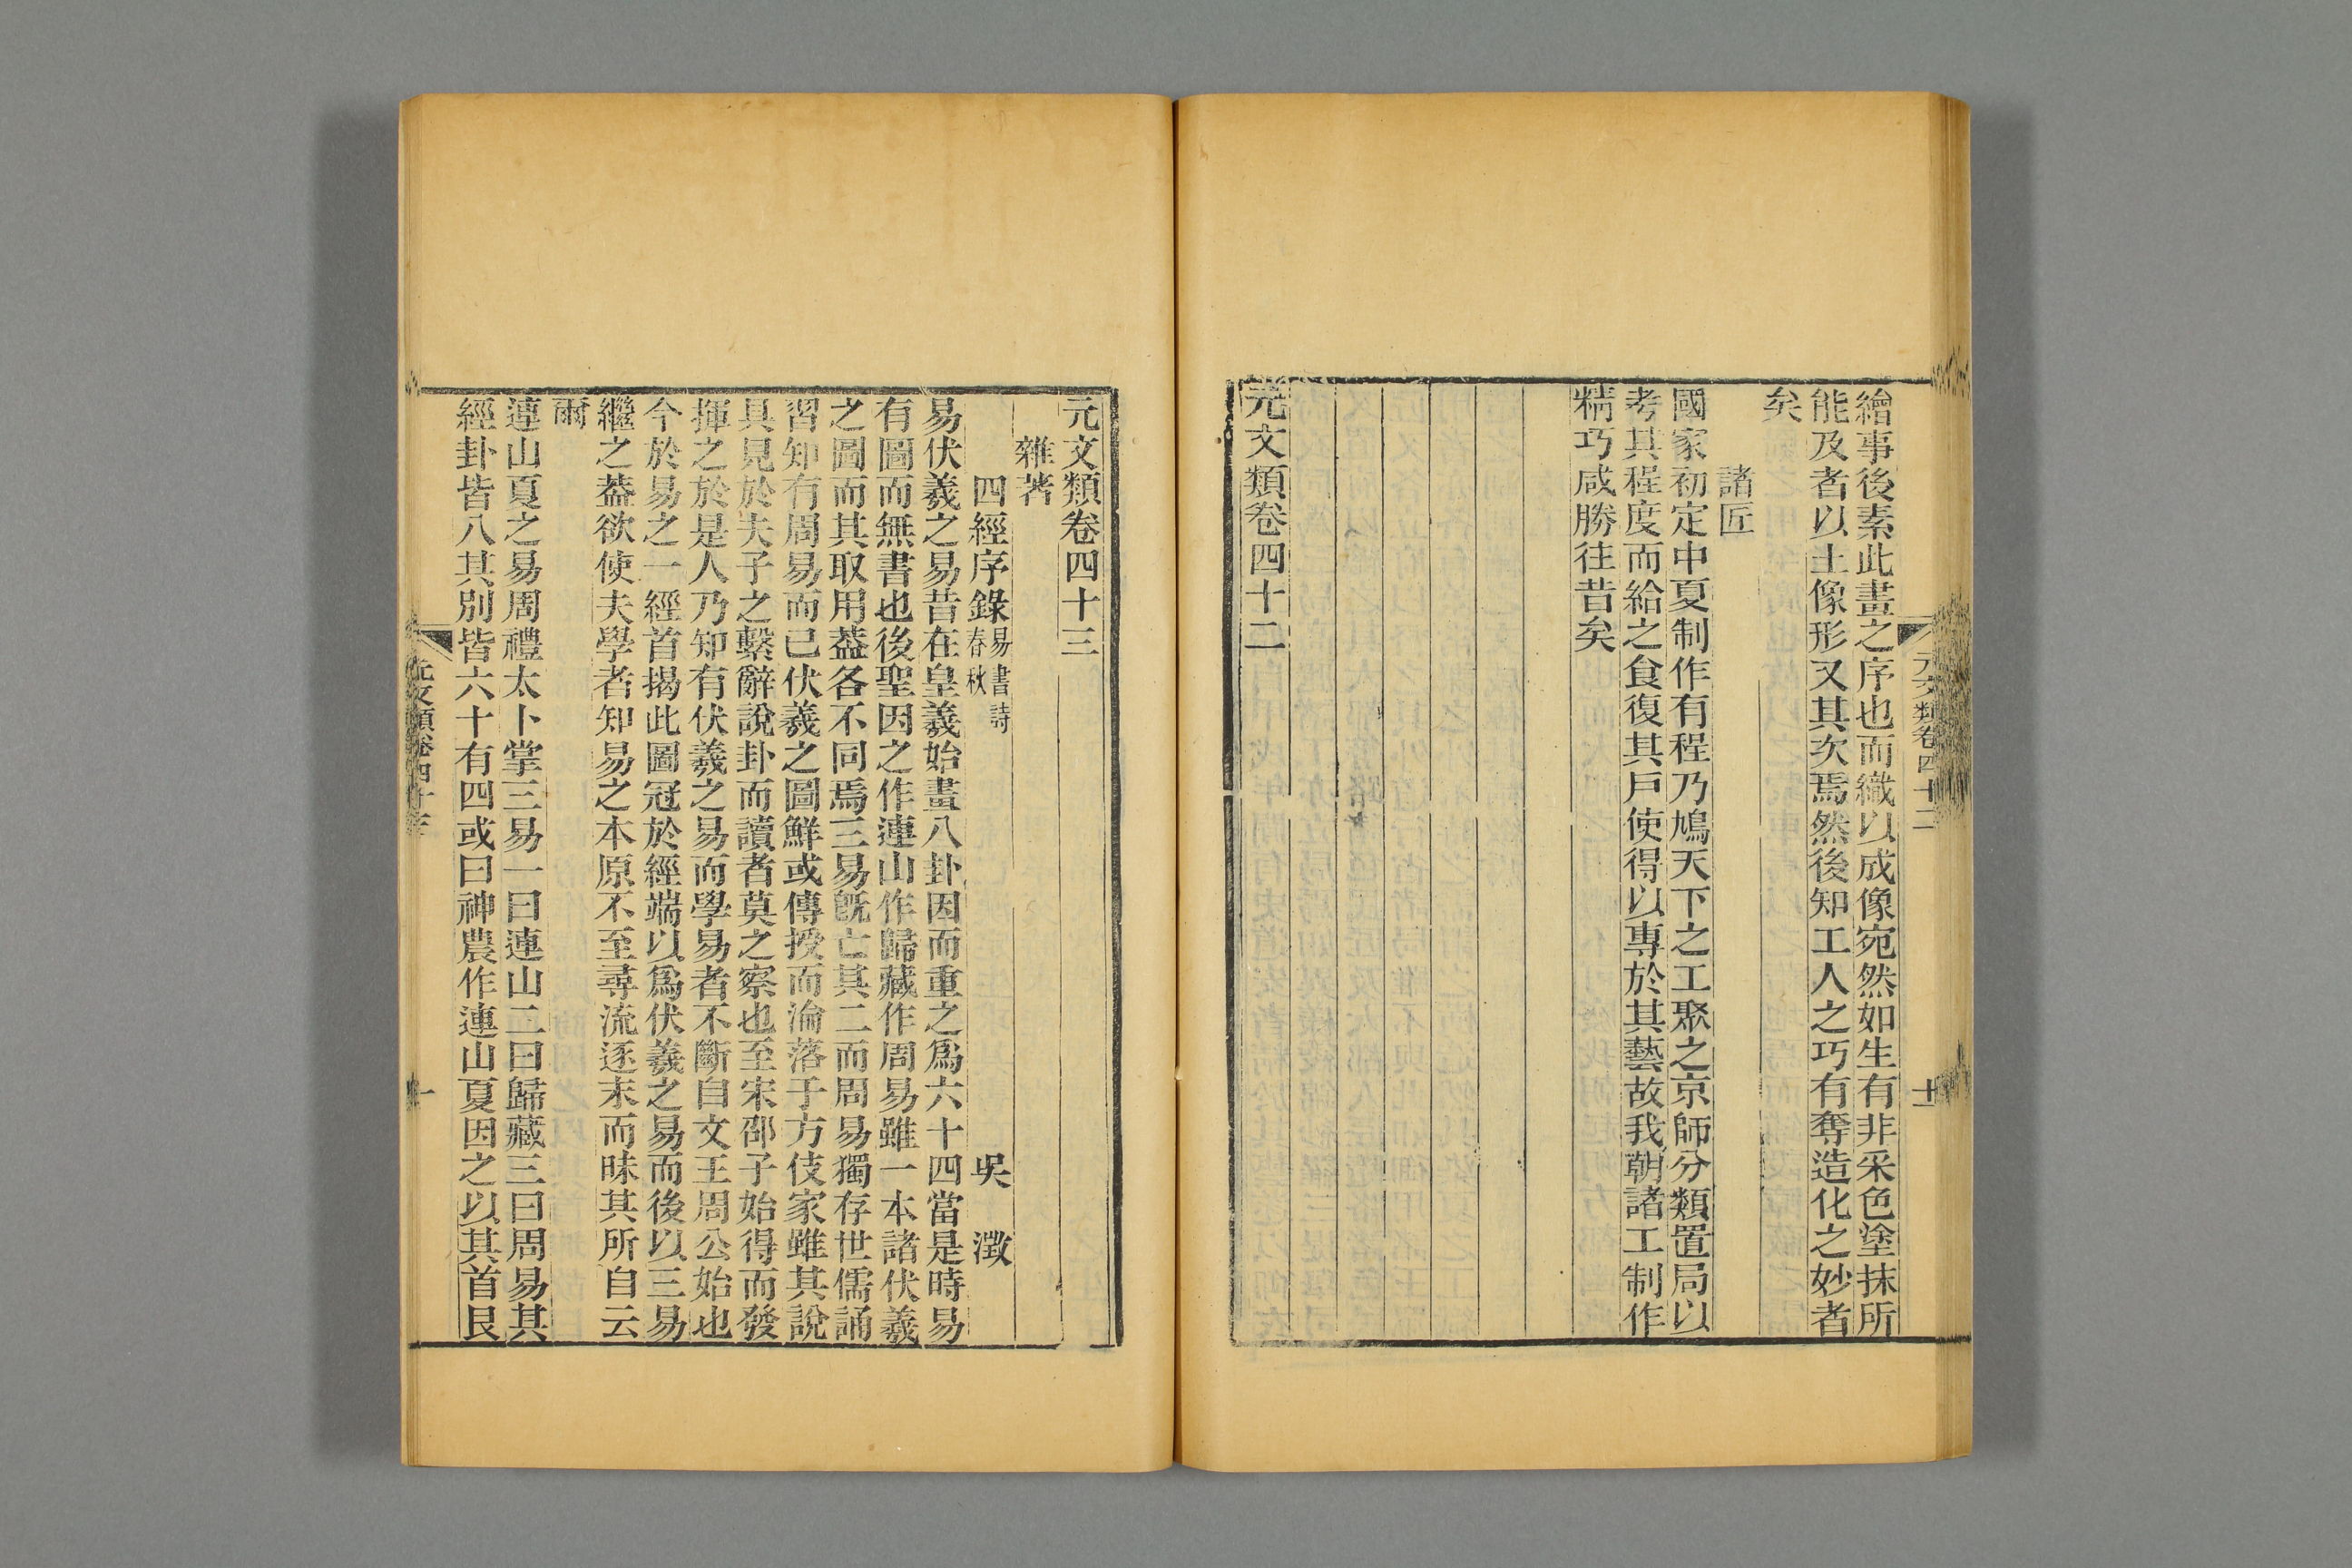 元文類卷四十二
十一
繪事後素此畫之序也而織以成像宛然如生有非采色塗抹所
能及者以土像形又其次焉然後知工人之巧有奪造化之妙者
矣
諸匠
國家初定中夏制作有程乃鳩天下之工聚之京師分類置局以
考其程度而給之食復其戶使得以專於其藝故我朝諸工制作
精巧咸勝往昔矣
元文類卷四十二
元文類卷四十三
雜著
四經序錄易書詩春秋 吳澂
易伏羲之易昔在皇羲始畫八卦因而重之爲六十四當是時易
有圖而無書也後聖因之作連山作歸藏作周易雖一本諸伏羲
之圖而其取用葢各不同焉三易旣亡其二而周易獨存世儒誦
習知有周易而已伏羲之圖鮮或傳授而淪落于方伎家雖其說
具見於夫子之繫辭說卦而讀者莫之察也至宋邵子始得而發
揮之於是人乃知有伏羲之易而學易者不斷自文王周公始也
今於易之一經首揭此圖冠於經端以爲伏羲之易而後以三易
繼之葢欲使夫學者知易之本原不至尋流逐末而昧其所自云
爾
連山夏之易周禮太卜掌三易一曰連山二曰歸藏三曰周易其
經卦皆八其別皆六十有四或曰神農作連山夏因之以其首艮
元文類卷四十三
一